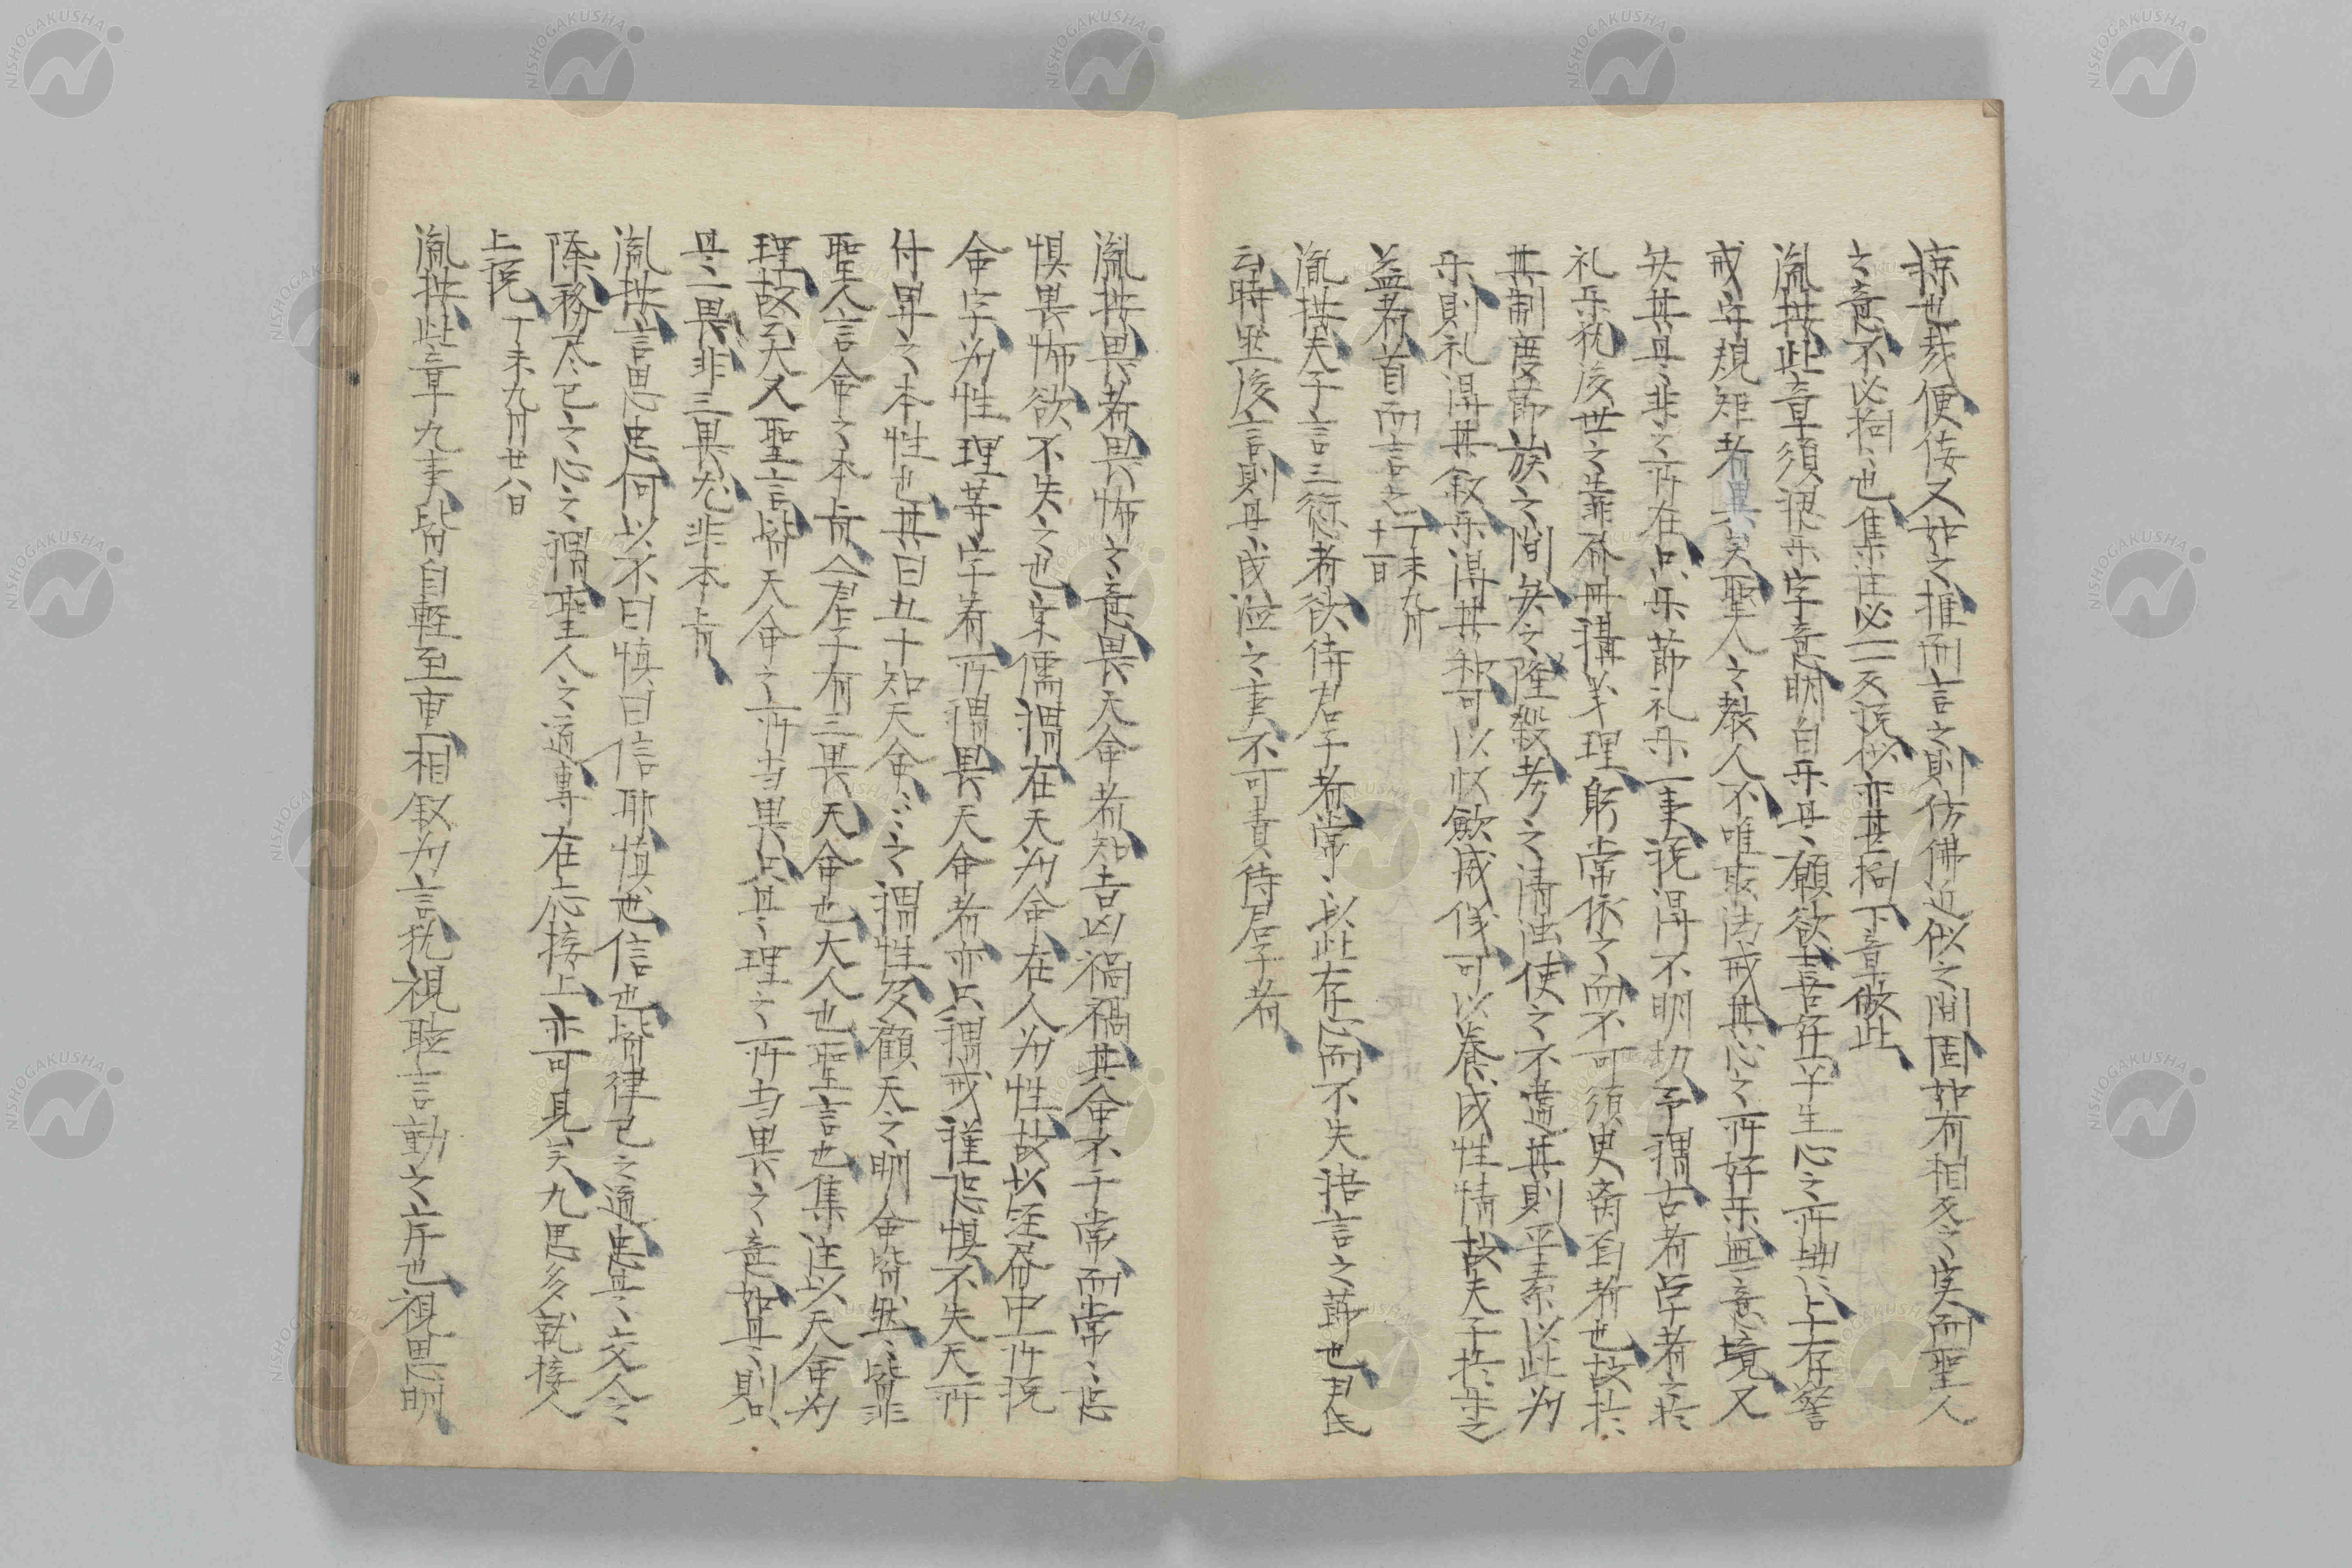 諒也哉便佞又如之推而言之則仿佛近似之間固如有相反之実而聖人
之意不必拘々也集注必一一反説似亦甚拘下章倣此
胤按此章須視楽字意明白楽是願欲喜好平生心之所 上存
戒守規矩者異矣聖人之教人不唯要法戒其心之所好楽無意境又
失其是非之所在只楽節礼楽一事説得不明切予謂古者学者之於
礼楽猶後世之 冊講義理躬常依之而不可須臾 者也故於
其制度節族之間失之隆殺考之清濁使之不違其則平素以此為
楽則礼得其叙楽得其和可以收斂威儀可以養成性情故夫子於楽之
益者首而言之 丁未九月十一日
胤按夫子言三愆者欲侍君子者常々以此存心而不失語言之節也尹氏
云時然後言則是成 之事不可責侍君子者
胤按畏者畏怖之意畏天命者知吉凶禍福其命不于常而常々恐
惧畏怖欲不失之也宋儒謂在天為命在人為性故以経書中所説
命字為性理等字看所謂畏天命者亦只謂戒謹恐惧不失天所
付畀之本性也其曰五十知天命々々之謂性及顧天之明命皆然々皆非
聖人言命之本旨今君子有三畏天命也大人也聖言也集注以天命為
理故云大人聖言皆天命之所当畏只是理之所当畏之意如是則只
是一畏非三畏尤非本旨
胤按言思忠何以不曰慎曰信耶慎也信也皆律己之道忠是交人之
際務尽己之心之謂聖人之道専在応接上亦可見矣九思多就接人
上説 丁未九月廿六日
胤按此章九事皆自軽至重相叙為言猶視聴言動之序也視思明